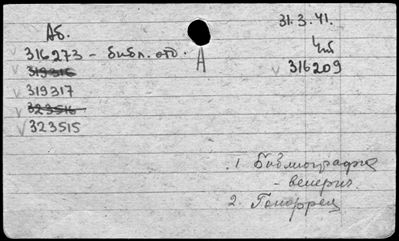 31.3.41.
Аб. Чб
316273 – библ. отд. А 316209
319316
319317
323516
323515
1 Библиография
– венерич.
2. Гоноррея